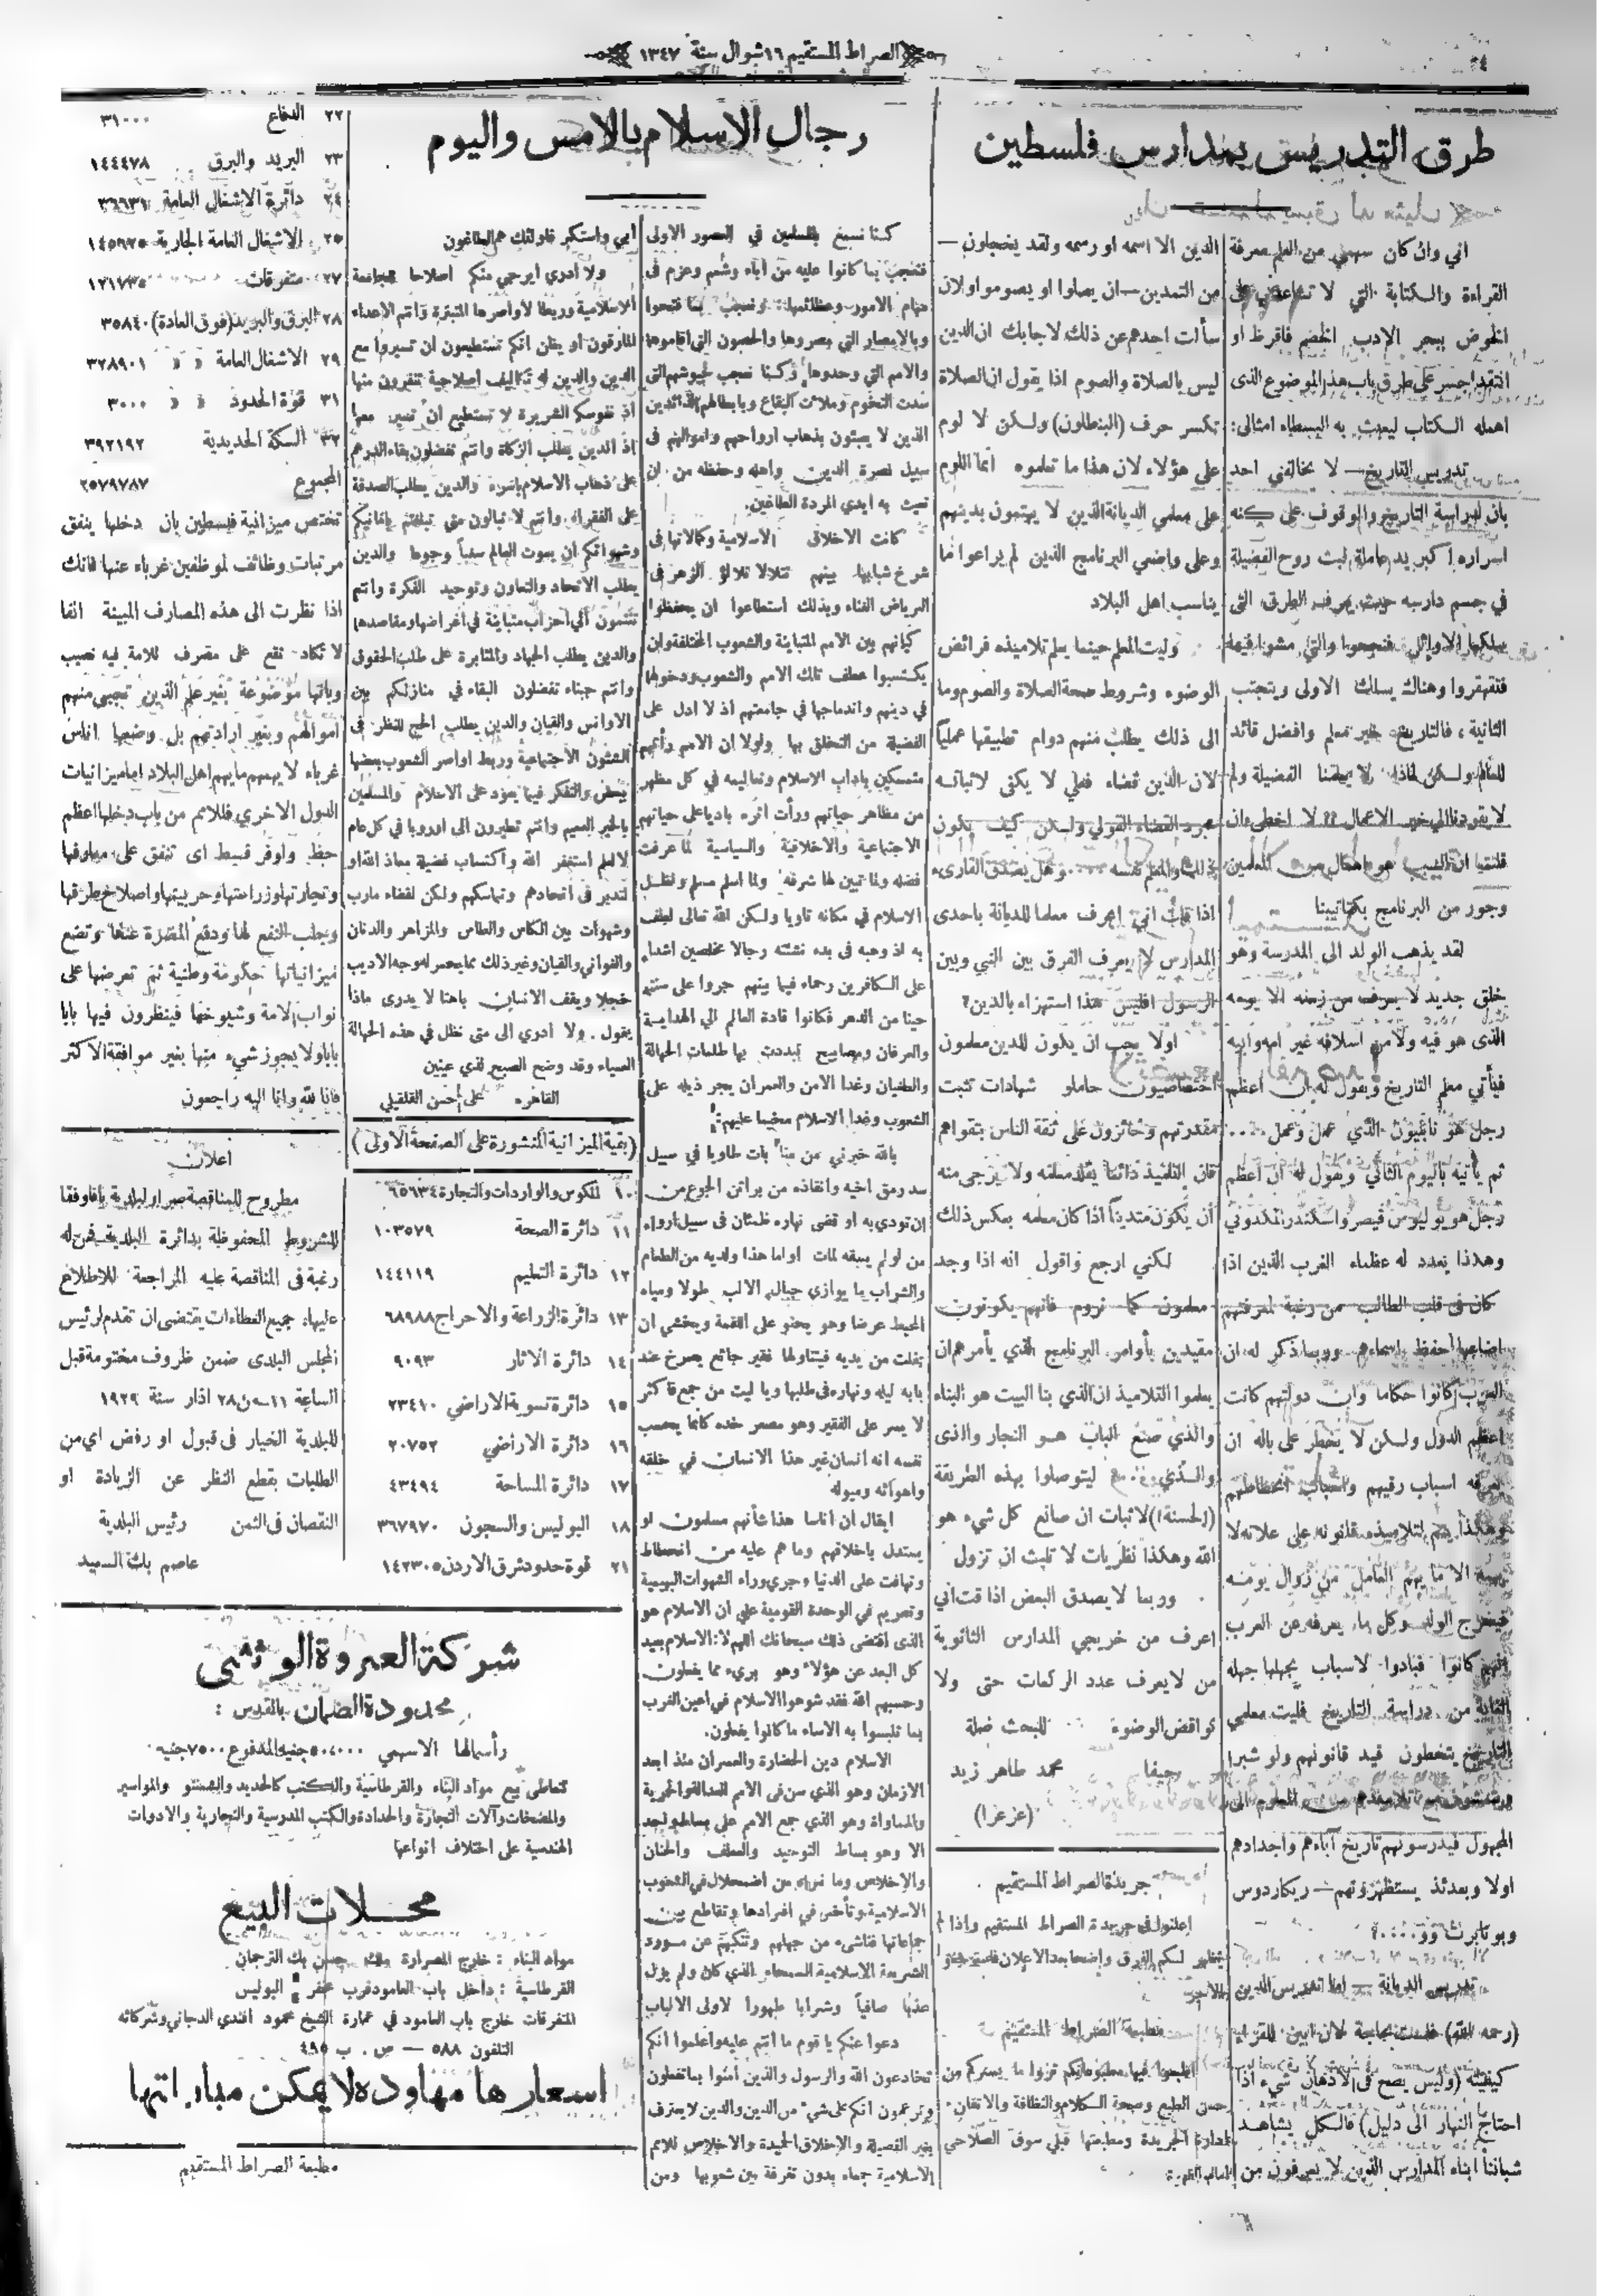 الصراط المستقيم ١٦ شوال سنة ١٣٤٧
٤
طرق التدريس بمدارس فلسطين
اني وان كان سهمي من العلم معرفة
القراءة والكتابة التي لا تساعدني على
الخوض ببحر الادب الخضم فاقرظ او
انتقد اجسر على طرق باب هذا الموضوع الذى
اهمله الكتاب ليبحث به البسطاء امثالى:
تدريس التاريخ — لا يخالفني احد
بان لدراسة التاريخ والوقوف على كنه
اسراره اكبر يد عاملة لبث روح الفضيلة
في جسم دارسه حيث يعرف الطرق التى
سلكها الاوائل فنجحوا والتي مشوا فيها
فتقهقروا وهناك يسلك الاولى ويتجنب
الثانية ، فالتاريخ خير معلم وافضل قائد
للعالم ولكن لماذا لا يعلمنا الفضيلة ولم
لا يقودنا الى خير الاعمال ؟؟ لا اخطىء ان
قلت ان السبب هو اهمال من المعلمين
وجور من البرنامج بكتاتيبنا
لقد يذهب الولد الى المدرسة وهو
خلق جديد لا يعرف من زمنه الا يومه
الذى هو فيه ولا من اسلافه غير امه وابيه
فيأتي معلم التاريخ ويقول له ان اعظم
رجل هو نابليون الذي عمل وعمل ....
ثم يأتيه باليوم الثاني ويقول له ان اعظم
رجل هو يوليوس قيصر واسكندر المكدوني
وهكذا يعدد له عظماء الغرب الذين اذا
كان في قلب الطالب من رغبة لمعرفتهم
اضاعها لحفظ اسماءهم وربما ذكر له ان
العرب كانوا حكاما وان دولتهم كانت
اعظم الدول ولكن لا يخطر على باله ان
يعرفه اسباب رقيهم واسباب انحطاطهم
وهكذا يتم لتلاميذه قانونه على علاته لا
يهمه الا ما يهم العامل من زوال يومه
فيخرج الولد وكل ما يعرفه عن العرب
انهم كانوا فبادوا لاسباب يجهلها جهله
الغاية من دراسة التاريخ فليت معلمي
التاريخ يتخطون قيد قانونهم ولو شبرا
المجهول فيدرسونهم تاريخ آباءهم واجدادهم
اولا وبعدئذ يستظهرونهم — ريكاردوس
وبونابرت وو....؟
تدريس الديانة — اما تدريس الدين
(رحمه الله) فلست بحاجة لان ابين للقراء
كيفيته (وليس يصح في الاذهان شيء اذا
احتاج النهار الى دليل) فالكل يشاهد
شباننا ابناء المدارس الذين لا يعرفون من
الدين الا اسمه او رسمه ولقد يخجلون —
من التمدين — ان يصلوا او يصوموا ولان
سألت احدهم عن ذلك لاجابك ان الدين
ليس بالصلاة والصوم اذا يقول ان الصلاة
تكسر حرف (البنطلون) ولكن لا لوم
على هؤلاء لان هذا ما تعلموه انما اللوم
على معلمي الديانة الذين لا يهتمون بدينهم
وعلى واضعي البرنامج الذين لم يراعوا ما
يناسب اهل البلاد
وليت المعلم حينما يعلم تلاميذه فرائض
الوضوء وشروط صحة الصلاة والصوم وما
الى ذلك يطلب منهم دوام تطبيقها عملياً
لان الدين قضاء فعلي لا يكفى لاثباته
مجرد القضاء القولي ولكن كيف يكون
ذلك والمعلم نفسه .... وهل يصدق القارىء
اذا قلت اني اعرف معلما للديانة باحدى
المدارس لا يعرف الفرق بين النبي وبين
الرسول افليس هذا استهزاء بالدين؟
اولا يجب ان يكون للدين معلمون
اختصاصيون حاملو شهادات تثبت
مقدرتهم وحائزون على ثقة الناس بتقواهم
فان التلميذ دائما يقلد معلمه ولا يرجى منه
أن يكون متديناً اذا كان معلمه بعكس ذلك
لكني ارجع واقول انه اذا وجد
معلمون كما نروم فانهم يكونون
مقيدين بأوامر البرنامج الذي يأمرهم ان
يعلموا التلاميذ ان الذي بنا البيت هو البناء
والذي صنع الباب هو النجار والذى
والذي .... ليتوصلوا بهذه الطريقة
(الحسنة!) لاثبات ان صانع كل شيء هو
الله وهكذا نظريات لا تلبث ان تزول
وربما لا يصدق البعض اذا قلت اني
اعرف من خريجي المدارس الثانوية
من لا يعرف عدد الركعات حتى ولا
نواقض الوضوء للبحث صلة
حيفا محمد طاهر زيد
(عزعزا)
جريدة الصراط المستقيم
اعلنوا في جريدة الصراط المستقيم واذا لم
يظهر لكم الفرق واضحا بعد الاعلان
الاجر
مطبعة الصراط المستقيم
اطبعوا فيها مطبوعاتكم تروا ما يسركم من
حسن الطبع وصحة الكلام والنظافة والاتقان
ادارة الجريدة ومطبعتها قبلي سوق الصلاحي
رجال الاسلام بالامس واليوم
كنا نسمع بالمسلمين في العصور الاولى
فنعجب بما كانوا عليه من اباء وشمم وعزم فى
مهام الامور وعظائمها ونعجب بما فتحوا
وبالامصار التي مصروها والحصون التي اقاموها
والامم التي وحدوها وكنا نعجب بجيوشهم التي
سدت التخوم وملأت البقاع وبابطالهم الذائدين
الذين لا يعبئون بذهاب ارواحهم واموالهم فى
سبيل نصرة الدين واهله وحفظه من ان
تعبث به أيدي المردة الطاغين.
كانت الاخلاق الاسلامية وكمالاتها فى
شرخ شبابها بينهم تتلالا تلالؤ الزهر فى
الرياض الغناء وبذلك استطاعوا ان يحفظوا
كيانهم بين الامم المتباينة والشعوب المختلفة وان
يكتسبوا عطف تلك الامم والشعوب ودخولها
في دينهم واندماجها في جامعتهم اذ لا ادل على
الفضيلة من التخلق بها ولولا ان الامم رأتهم
متمسكين باداب الاسلام وتعاليمه في كل مظهر
من مظاهر حياتهم ورأت اثره باديا على حياتهم
الاجتماعية والاخلاقية والسياسية لما عرفت
فضله ولما تبين لها شرفه ولما اسلم مسلم ولظل
الاسلام في مكانه ثاويا ولكن الله تعالى لطف
به اذ وهبه فى بدء نشئته رجالا مخلصين اشداء
على الكافرين رحماء فيما بينهم جروا على سنته
حينا من الدهر فكانوا قادة العالم الى الهداية
والعرفان ومصابيح تبددت بها ظلمات الجهالة
والطغيان وغدا الامن والعمران يجر ذيله على
الشعوب وغدا الاسلام مخيما عليهم!
بالله خبرني من منا بات طاويا في سبيل
سد رمق اخيه وانقاذه من براثن الجوع من
ان تودي به او قضى نهاره ظمئان فى سبيل ارواء
من لو لم يسقه لمات اواما هذا ولديه من الطعام
والشراب ما يوازي جبال الالب طولا ومياه
المحيط عرضا وهو يحنو على اللقمة ويخشى ان
يفلت من يديه فيتناولها فقير جائع يصرخ عند
بابه ليله ونهاره فى طلبها ويا ليت من جمع فاكثر
لا يمر على الفقير وهو مصعر خده كانما يحسب
نفسه انه انسان غير هذا الانسان في خلقه
واهوائه وميوله
ايقال ان اناسا هذا شأنهم مسلمون او
يستدل باخلاقهم وما هم عليه من انحطاط
وتهافت على الدنيا وجري وراء الشهوات البهيمية
وتصريم في الوحدة القومية على ان الاسلام هو
الذى اقتضى ذلك سبحانك اللهم لا: الاسلام بعيد
كل البعد عن هؤلاء وهو بريء مما يفعلون
وحسبهم الله فقد شوهوا الاسلام في اعين الغرب
بما تلبسوا به الاساء ما كانوا يفعلون.
الاسلام دين الحضارة والعمران منذ ابعد
الازمان وهو الذي سن فى الامم العدالة والحرية
والمساواة وهو الذي جمع الامم على بساط واحد
الا وهو بساط التوحيد والعطف والحنان
والاخلاص وما نراه من اضمحلال في الشعوب
الاسلامية وتأخر في افرادها وتقاطع بين
جماعاتها فناشىء من جهلهم وتنكبهم عن مورد
الشريعة الاسلامية السمحاء الذي كان ولم يزل
عذبا صافياً وشرابا طهورا لاولى الالباب
دعوا عنكم يا قوم ما انتم عليه واعلموا انكم
تخادعون الله والرسول والذين آمنوا بما تفعلون
وتزعمون انكم على شيء من الدين والدين لا يعترف
بغير الفضيلة والاخلاق الحميدة والاخلاص للامم
الاسلامية جمعاء بدون تفرقة بين شعوبها ومن
أبى واستكبر فاولئك هم الطاغون
ولا أدري ايرجى منكم اصلاحا للجامعة
الاسلامية وربطا لأواصرها المنبترة وانتم الاعداء
المارقون او يظن انكم تستطيعون ان تسيروا مع
الدين والدين له تكاليف اصلاحية تنفرون منها
اذ نفوسكم الشريرة لا تستطيع ان تسير معها
اذ الدين يطلب الزكاة وانتم تفضلون بقاء الدرهم
على ذهاب الاسلام باسره والدين يطلب الصدقة
على الفقراء وانتم لا تبالون متى تبلغتم بامانيكم
وشهواتكم ان يموت العالم سغباً وجوعا والدين
يطلب الاتحاد والتعاون وتوحيد الفكرة وانتم
تنقسمون الى أحزاب متباينة في أغراضها ومقاصدها
والدين يطلب الجهاد والمثابرة على طلب الحقوق
وانتم جبناء تفضلون البقاء في منازلكم بين
الاوانس والقيان والدين يطلب الحج للنظر فى
الشئون الاجتماعية وربط اواصر الشعوب بعضها
ببعض والتفكر فيما يعود على الاسلام والمسلمين
بالخير العميم وانتم تطيرون الى اوروبا في كل عام
لا لعلم استغفر الله واكتساب فضيلة معاذ الله او
لتدبر فى اتحادهم وتماسكهم ولكن لقضاء مارب
وشهوات بين الكاس والطاس والمزاهر والدنان
والغواني والقيان وغير ذلك مما يحمر له وجه الاديب
خجلا ويقف الانسان باهتا لا يدرى ماذا
يقول. ولا ادري الى متى نظل في هذه الجهالة
العمياء وقد وضح الصبح لذي عينين
القاهره علي أحسن القلقيلي
(بقية الميزانية المنشورة على الصفحة الاولى)
١٠ المكوس والواردات والتجارة ٦٥٦٣٤
١١ دائرة الصحة ١٠٣٥٧٩
١٢ دائرة التعليم ١٤٤١١٩
١٣ دائرة الزراعة والاحراج ٦٨٩٨٨
١٤ دائرة الاثار ٩٠٩٣
١٥ دائرة تسوية الاراضي ٢٣٤١٠
١٦ دائرة الاراضي ٢٠٧٥٢
١٧ دائرة المساحة ٤٣٤٩٤
١٨ البوليس والسجون ٣٦٧٩٧٠
٢١ قوة حدود شرق الاردن ١٤٢٣٠٥
٢٢ الدفاع ٣١٠٠٠
٢٣ البريد والبرق ١٤٤٤٧٨
٢٤ دائرة الاشغال العامة ٣٦٦٣٧
٢٥ الاشغال العامة الجارية ١٤٥٩٢٥
٢٧ متفرقات ١٢١٧٣٥
٢٨ البرق والبريد (فوق العادة) ٣٥٨٤٠
٢٩ الاشغال العامة « « ٣٢٨٩٠١
٣١ قوة الحدود « « ٣٠٠٠
٣٢ السكة الحديدية ٣٩٢١٩٢
المجموع ٢٥٧٩٧٨٧
تختص ميزانية فلسطين بان دخلها ينفق
مرتبات وظائف لموظفين غرباء عنها فانك
اذا نظرت الى هذه المصارف المبينة انفا
لا تكاد تقع على مصرف للامة فيه نصيب
وبانها موضوعة بغير علم الذين تجبى منهم
اموالهم وبغير ارادتهم بل وضعها اناس
غرباء لا يهمهم ما يهم اهل البلاد اما ميزانيات
الدول الاخرى فللامم من باب دخلها اعظم
حظ واوفر قسط اى تنفق على معارفها
وتجارتها وزراعتها وحربيتها واصلاح طرقها
وجلب النفع لها ودفع المضرة عنها وتضع
ميزانياتها حكومة وطنية ثم تعرضها على
نواب الامة وشيوخها فينظرون فيها بابا
بابا ولا يجوز شيء منها بغير موافقة الاكثر
فانا لله وانا اليه راجعون
اعلان
مطروح للمناقصة لبلدية يافا وفقا
للشروط المحفوظة بدائرة البلدية فمن له
رغبة فى المناقصة عليه المراجعة للاطلاع
عليها، جميع العطاءات يقتضى ان تقدم لرئيس
المجلس البلدى ضمن ظروف مختومة قبل
الساعة ١١ من ٢٨ اذار سنة ١٩٢٩
للبلدية الخيار فى قبول او رفض اي من
الطلبات بقطع النظر عن الزيادة او
النقصان فى الثمن رئيس البلدية
عاصم بك السعيد
شركة العروة الوثقى
محدودة الضمان بالقدس :
رأسمالها الاسمي ٥٠٠٠٠ جنيه المدفوع ٧٥٠٠ جنيه
تتعاطى بيع مواد البناء والقرطاسية والكتب كالحديد والسمنتو والمواسير
والمضخات وآلات النجارة والحدادة والكتب المدرسية والتجارية والادوات
الهندسية على اختلاف انواعها
محلات البيع
مواد البناء : خارج المصرارة ملك حسن بك الترجمان
القرطاسية : داخل باب العامود قرب مخفر البوليس
المتفرقات خارج باب العامود في عمارة الشيخ محمود افندي الدجاني وشركائه
التلفون ٥٨٨ — ص . ب ٤٩٥
اسعارها مهاودة لا يمكن مباراتها
مطبعة الصراط المستقيم